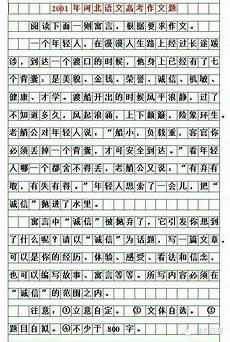 2001年河北语文高考作文题
阅读下面一则寓言,根据要求作文。
一个年轻人,在漫漫人生路上经过长途跋
涉,到达一个渡口的时候,他身上已经有了七
个背囊:是美貌、金钱、荣誉、诚信、机敏、
健康、才学。渡船开出的时候风平浪静,过了
不知道多久,风起浪涌,上下颠簸,险象环生。
老艄公对年轻人说,“船小,负载重,客官你
必须丢掉一个背囊,才可安全到达。”看年轻
人哪一个都舍不得丢,老艄公又说:“有弃有
取,有失有得。”年轻人思索了一会儿,把“
诚信”抛进了水里。
寓言中“诚信”被抛弃了,它引发你想到
了什么呢?请以“诚信”为话题,写一篇文章,
可以是你的经历、体验、感受、看法和信念,
也可以编写故事、寓言等等。所写内容必须在
“诚信”的范围之内。
注意:①立意自定。②文体自选。③
题目自拟。④不少于800字。